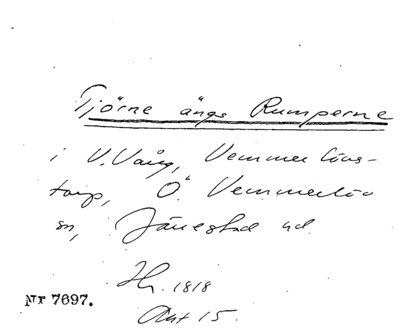 Tjörne ängs Rumperne
i V. Vång, Vemmerlövs-
torp, Ö. Vemmerlöv
sn, Järrestad hd.
Hs. 1818
Akt 15.
Nr 7697.